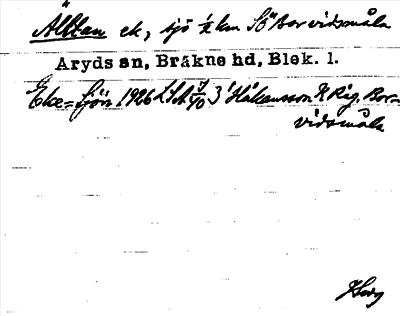 Älltan ek, sjö ½ km SÖ Bor vidsmåla
Aryds sn, Bräkne hd, Blek. l.
Eke=Sjön 1926 LSA
3 Håkansson R Rig. Bor-
vidsmåla